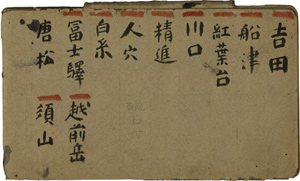 吉田
船津
紅葉台
川口
精進
人穴
白糸
冨士驛
越前岳
唐松
須山